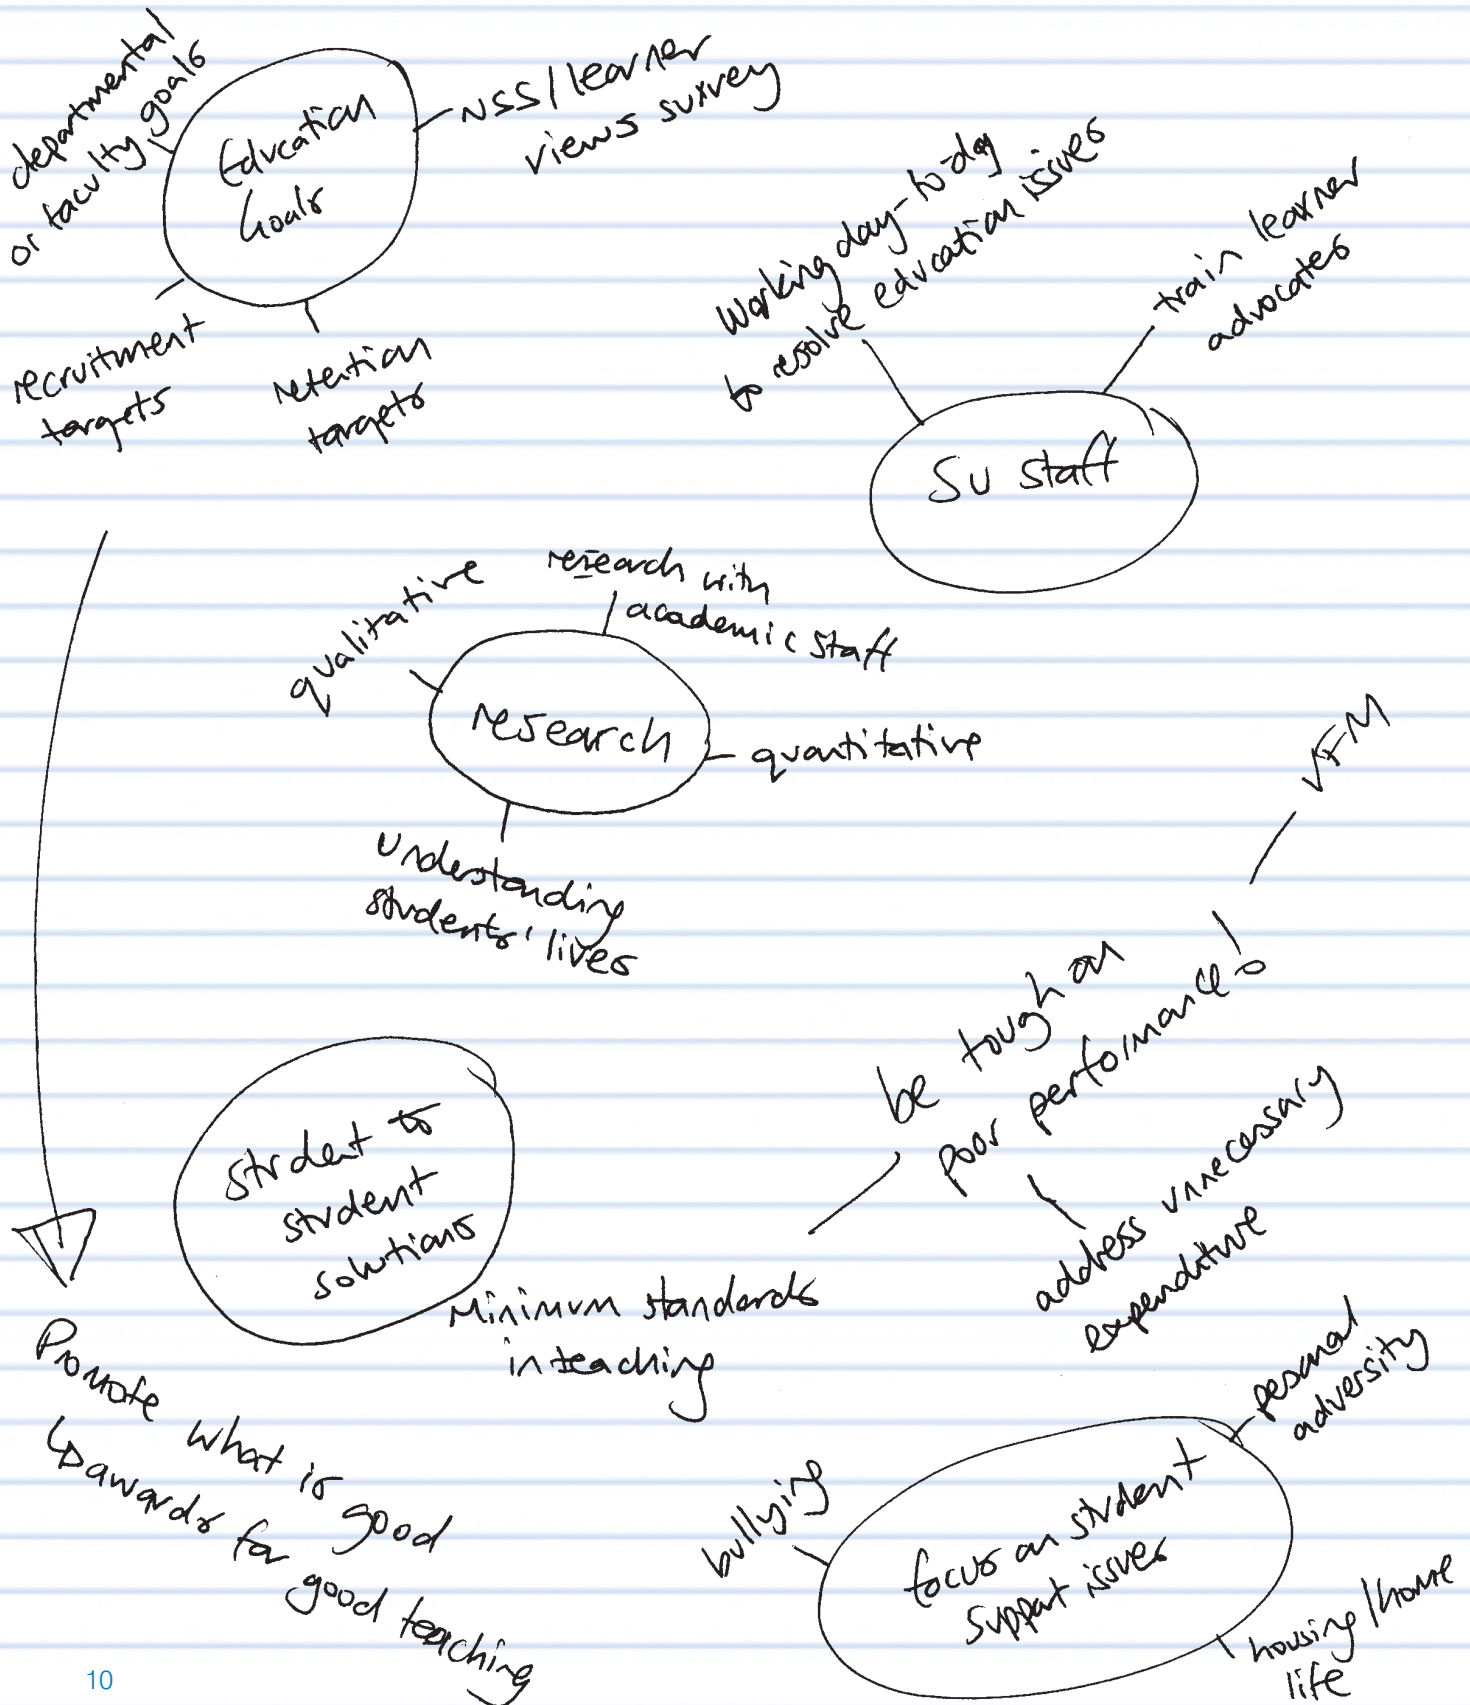 departmental
or faculty goals
Education
Goals
NSS/learner
views survey
recruitment
targets
retention
targets
Working day-to-day
to resolve education issues
train learner
advocates
SU staff
qualitative
research with
academic staff
research
quantitative
understanding
students' lives
VFM
be tough on
poor performance!
address unnecessary
expenditure
student to
student
solutions
Minimum standards
in teaching
Promote what is good
↳ awards for
good teaching
bullying
focus on student
support issues
pesonal
adversity
housing/home
life
10